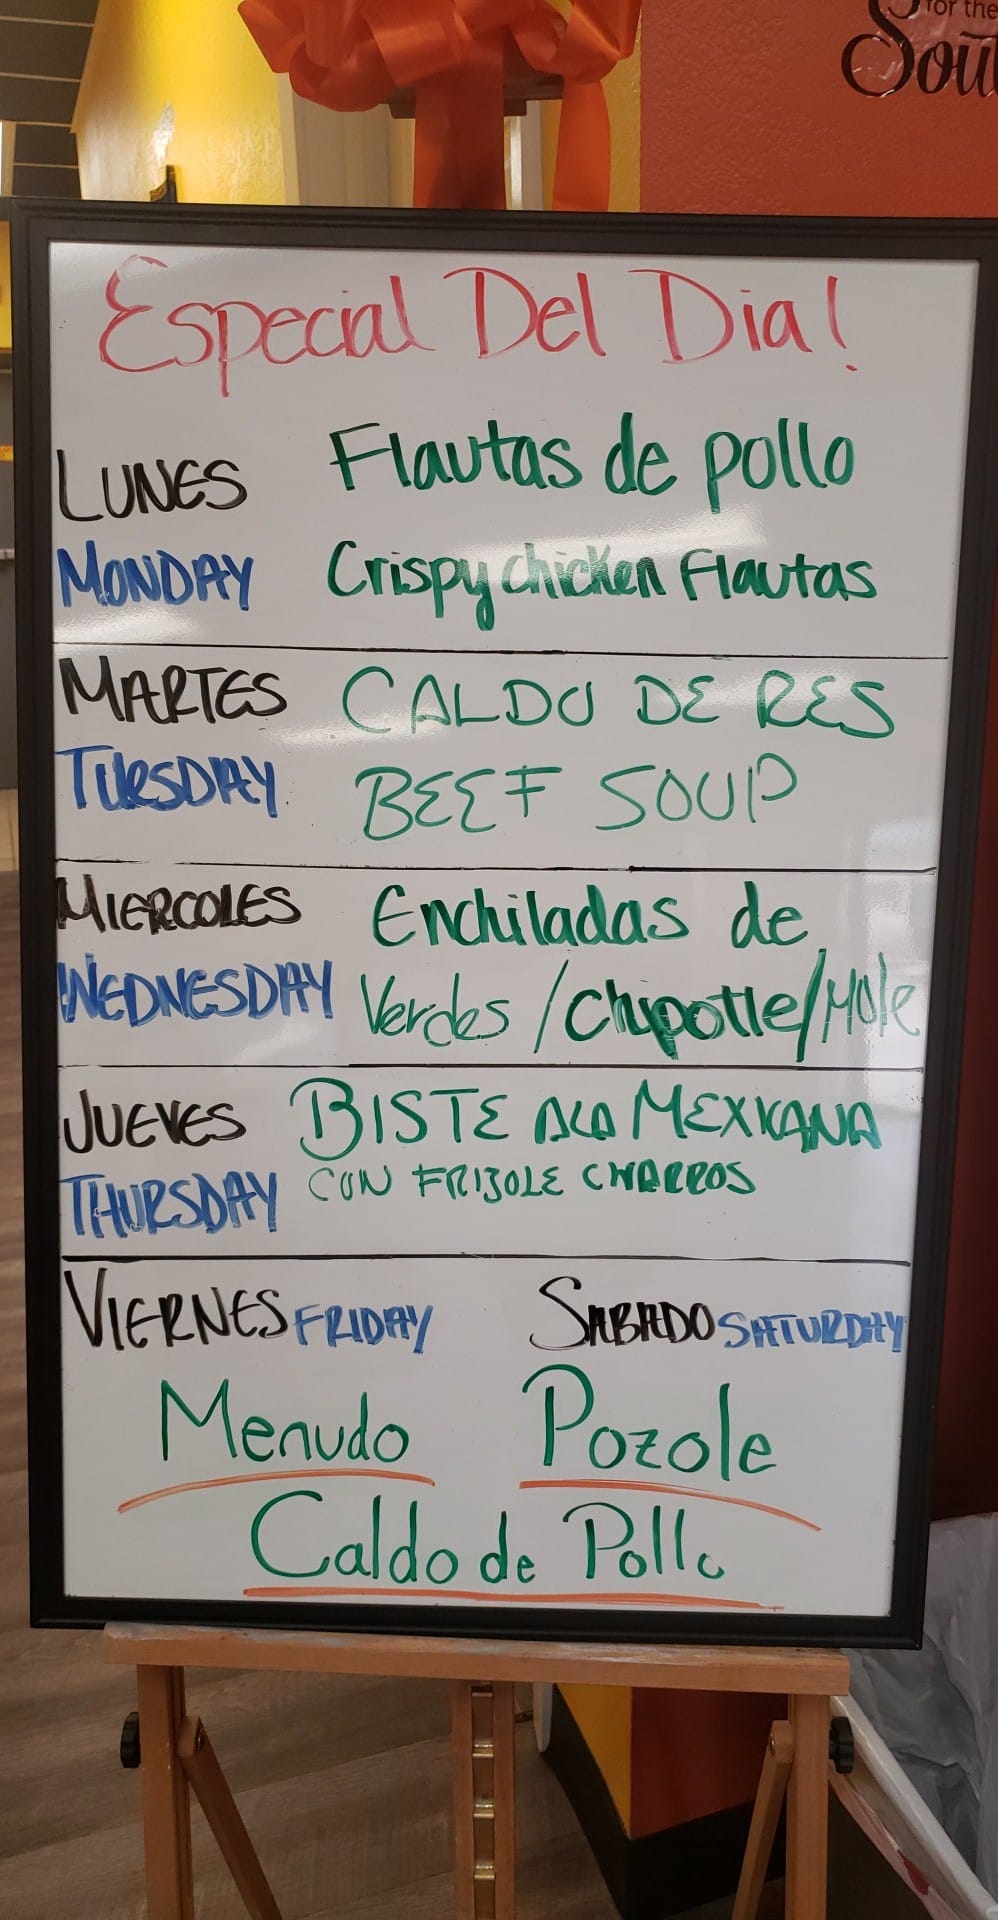 for the
Soul
Especial Del Dia!
LUNES Flautas de pollo
MONDAY Crispy chicken Flautas
MARTES CALDO DE RES
TUESDAY BEEF SOUP
MIERCOLES Enchiladas de
WEDNESDAY Verdes / Chipotle / Mole
JUEVES BISTE ALA MEXICANA
THURSDAY CON FRIJOLE CHARROS
VIERNES FRIDAY SABADO SATURDAY
Menudo Pozole
Caldo de Pollo